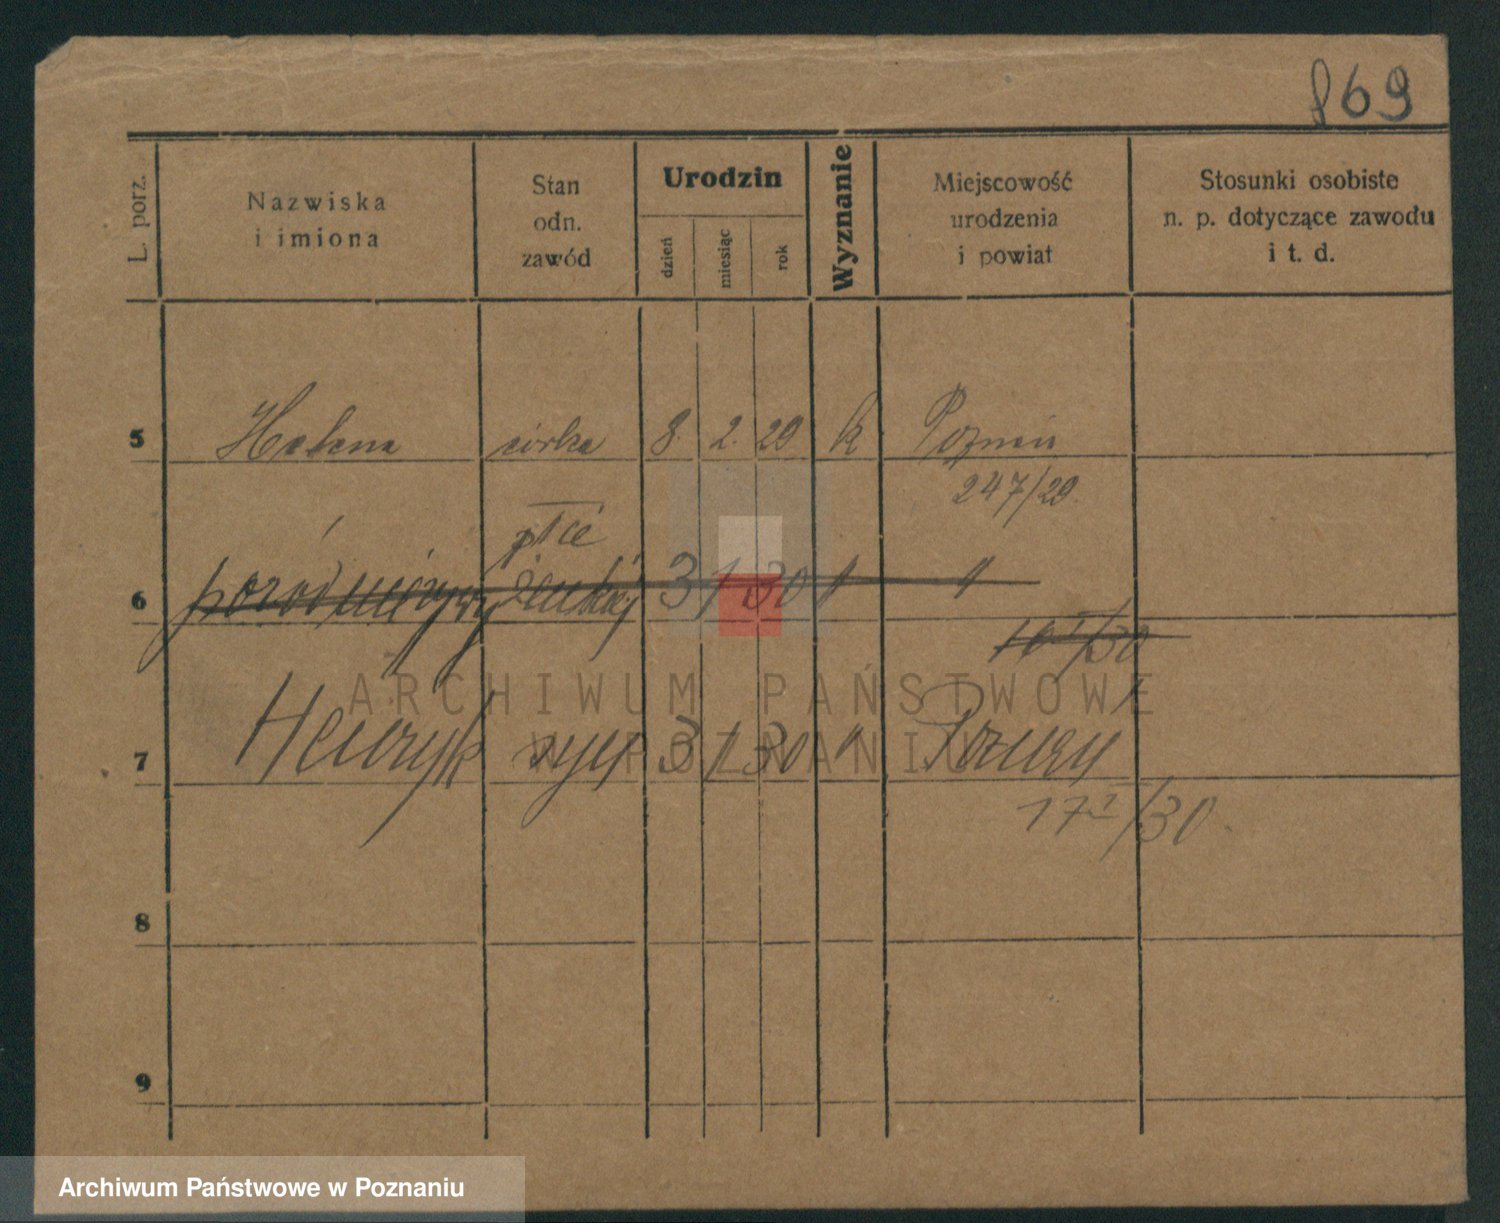 869
L. porz.
Nazwiska
i imiona
Stan
odn.
zawód
Urodzin
dzień
miesiąc
rok
Wyznanie
Miejscowość
urodzenia
i powiat
Stosunki osobiste
n. p. dotyczące zawodu
i t. d.
5 Helena córka 8. 2. 29 k Poznań
247/29.
płce
6 żeńskiej 3 1 30 "
10 I/30
7 Henryk syn 3 1 30 " Poznań
17 I/30.
8
9
ARCHIWUM PAŃSTWOWE
W POZNANIU
Archiwum Państwowe w Poznaniu